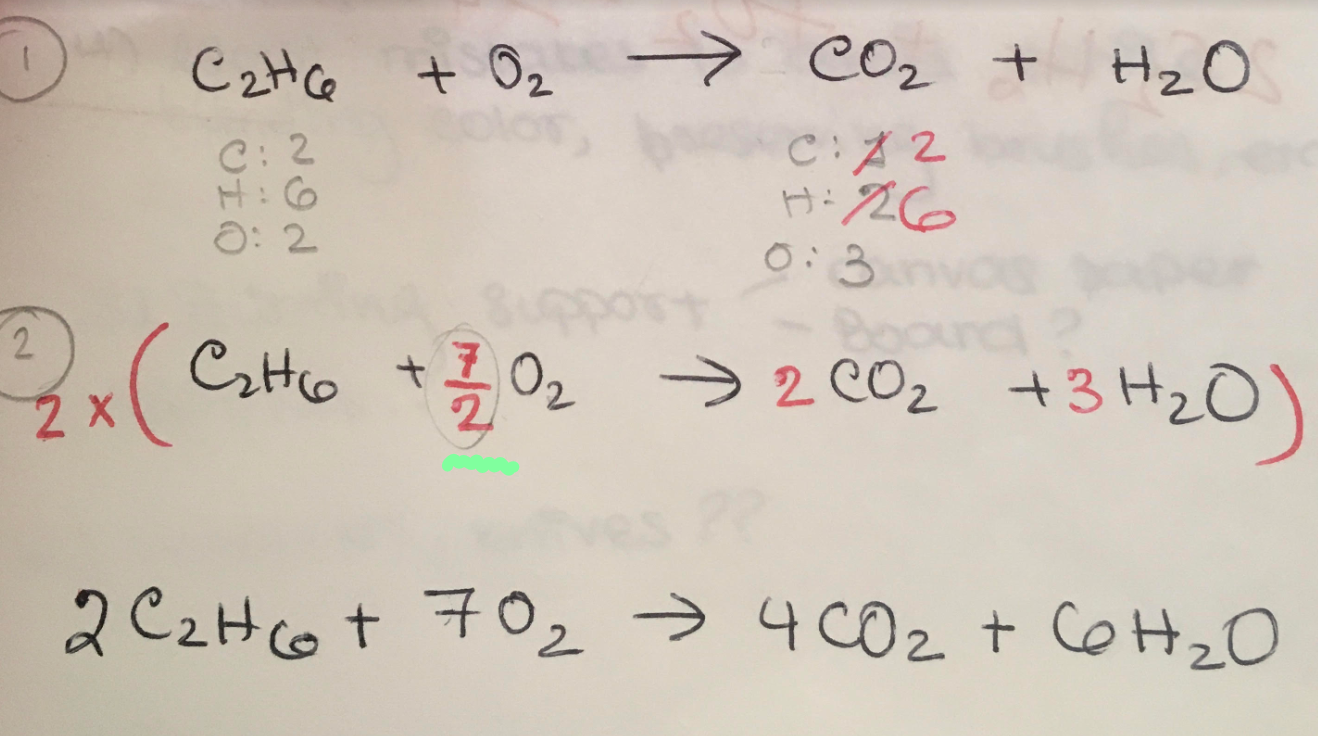 1 C₂H₆ + O₂ → CO₂ + H₂O
C: 2 C: 1 2
H: 6 H: 2 6
O: 2 O: 3
2 2 × ( C₂H₆ + 7/2 O₂ → 2 CO₂ + 3 H₂O )
2 C₂H₆ + 7 O₂ → 4 CO₂ + 6 H₂O